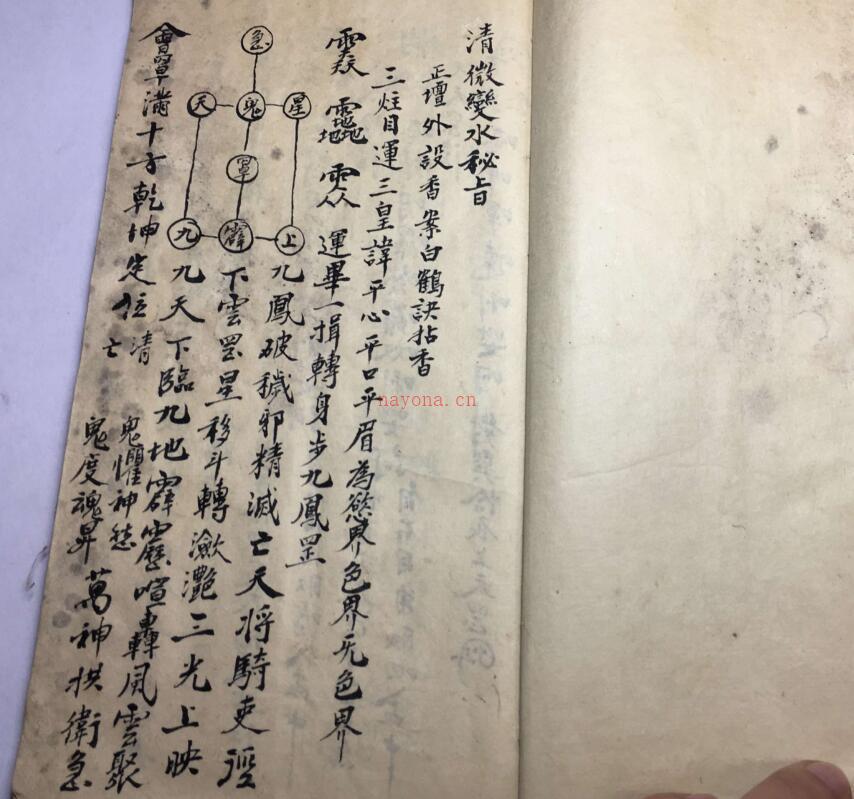 清微變水秘旨
正壇外設香案白鶴訣拈香
三炷目運三皇諱平心平口平眉為慾界色界无色界
運畢一揖轉身步九鳳罡
九鳳破穢邪精滅亡天將騎吏徑
下雲罡星移斗轉瀲灧三光上映
九天下臨九地霹靂喧轟風雲聚
會罩滿十方乾坤定位
清
亡
鬼懼神愁
鬼度魂昇
萬神拱衛急
急
天 鬼 星
罩
九 霹 上
nayona.cn